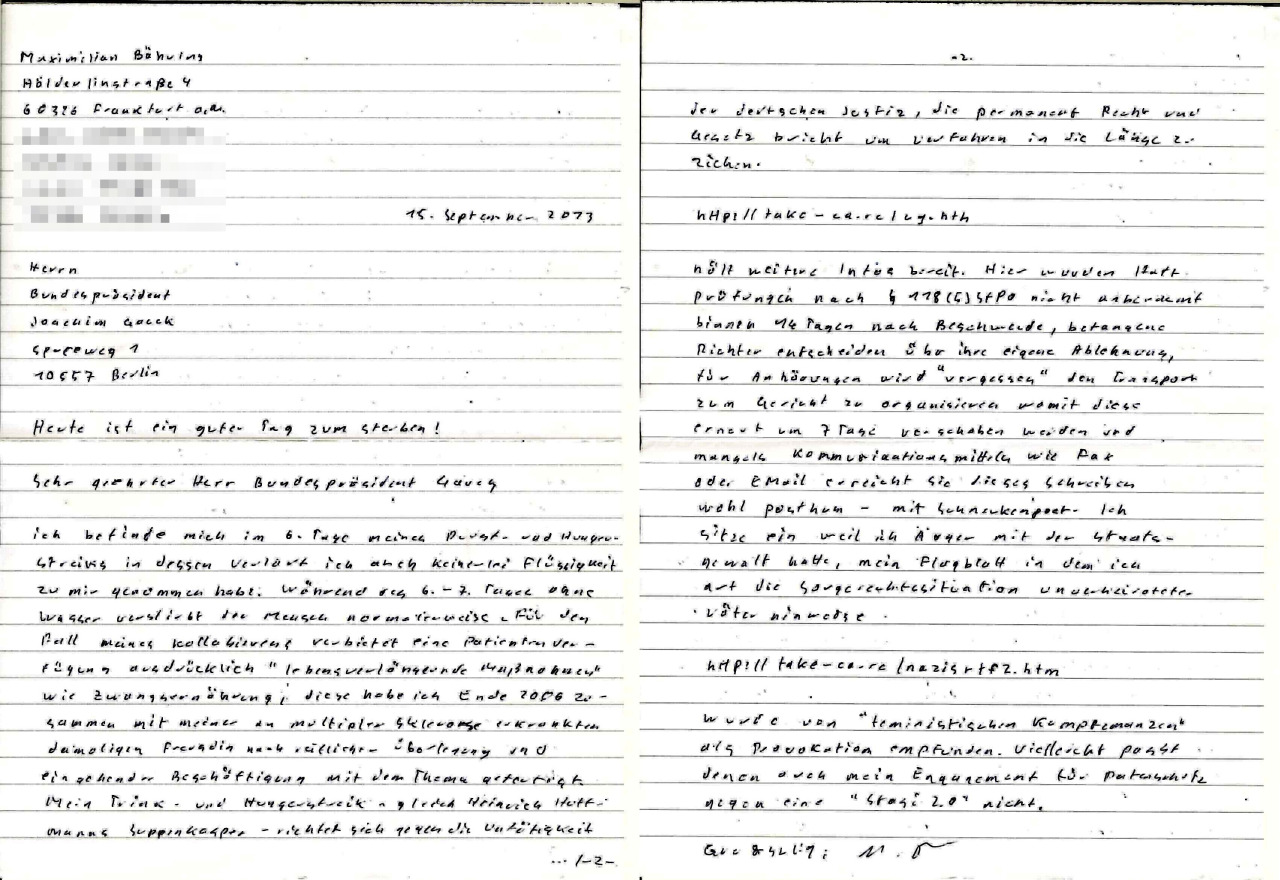 Maximilian Bähring
Hölderlinstraße 4
60316 Frankfurt a.M.
15. September 2013
Herrn
Bundespräsident
Joachim Gauck
Spreeweg 1
10557 Berlin
Heute ist ein guter Tag zum sterben!
Sehr geehrter Herr Bundespräsident Gauck
ich befinde mich im 6. Tage meines Durst- und Hunger-
streiks in dessen Verlauf ich auch keinerlei Flüssigkeit
zu mir genommen habe. Während des 6. - 7. Tages ohne
Wasser verstirbt der Mensch normalerweise. Für den
Fall meines kollabierens verbietet eine Patientenver-
fügung ausdrücklich "lebensverlängernde Maßnahmen"
wie Zwangsernährung; diese habe ich Ende 2006 zu-
sammen mit meiner an multipler Sklerose erkrankten
damaligen Freundin nach reiflicher Überlegung und
eingehender Beschäftigung mit dem Thema gefertigt.
Mein Trink- und Hungerstreik - gleich Heinrich Hoff-
manns Suppenkasper - richtet sich gegen die Untätigkeit
... /-2-
-2-
der deutschen Justiz, die permanent Recht und
Gesetz bricht um Verfahren in die Länge zu
ziehen.
http://take-ca.re/ug.htm
hält weitere Infos bereit. Hier wurden Haft-
prüfungen nach § 118(5) StPO nicht anberaumt
binnen 14 Tagen nach Beschwerde, befangene
Richter entscheiden über ihre eigene Ablehnung,
für Anhörungen wird "vergessen" den Transport
zum Gericht zu organisieren womit diese
erneut um 7 Tage verschoben werden und
mangels Kommunikationsmitteln wie Fax
oder EMail erreicht sie dieses Schreiben
wohl posthum - mit Schneckenpost. Ich
sitze ein weil ich Ärger mit der Staats-
gewalt hatte, mein Flugblatt in dem ich
auf die Sorgerechtssituation unverheirateter
Väter hinweise.
http://take-ca.re/nazisrtf2.htm
wurde von "feministischen Kampfemanzen"
als Provokation empfunden. Vielleicht passt
denen auch mein Engagement für Datenschutz
gegen eine "Stasi 2.0" nicht.